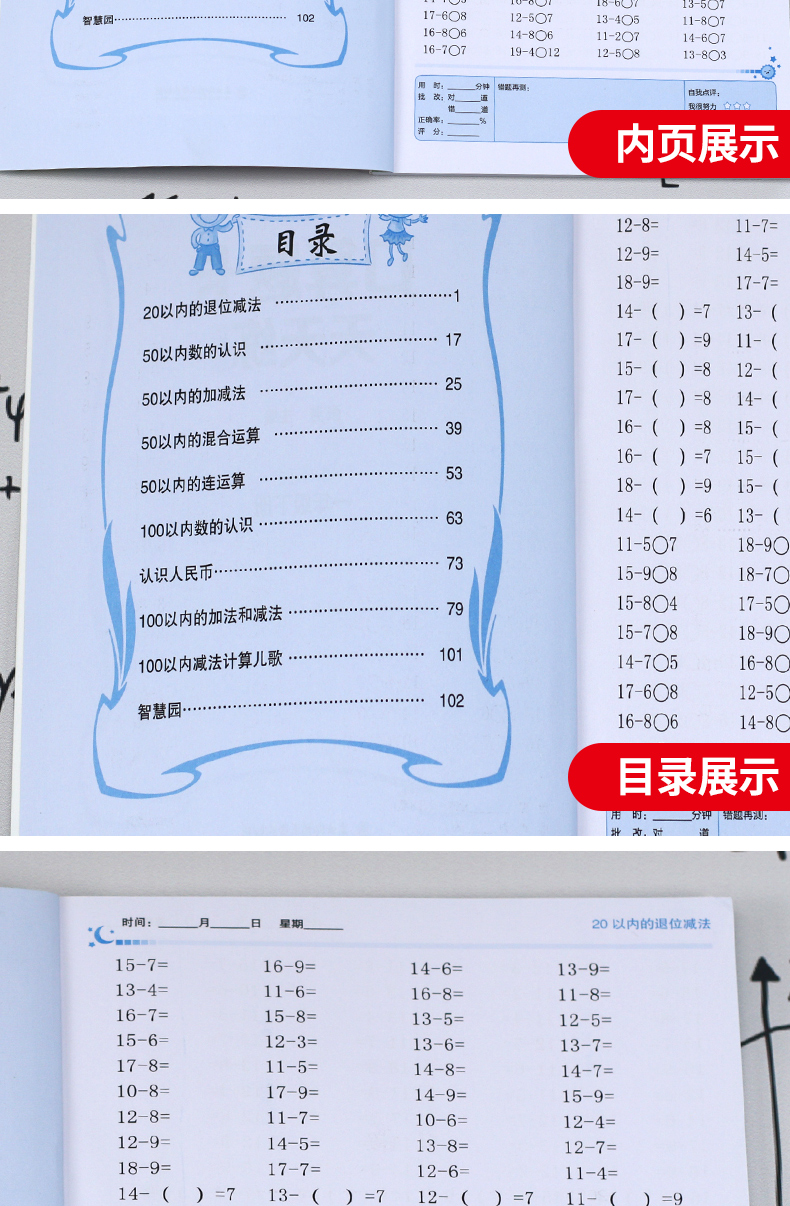 智慧园 102
17-6○8 12-5○7 13-4○5 11-8○7
16-8○6 14-8○6 11-2○7 14-6○7
16-7○7 19-4○12 12-5○8 13-8○3
用 时：______分钟 错题再测：
自我点评：
批 改：对______道
我很努力
错______道
正确率：______%
评 分：______
内页展示
目录
20以内的退位减法 1
50以内数的认识 17
50以内的加减法 25
50以内的混合运算 39
50以内的连运算 53
100以内数的认识 63
认识人民币 73
100以内的加法和减法 79
100以内减法计算儿歌 101
智慧园 102
12-8= 11-7=
12-9= 14-5=
18-9= 17-7=
14-（ ）=7 13-（
17-（ ）=9 11-（
15-（ ）=8 12-（
17-（ ）=8 14-（
16-（ ）=8 15-（
16-（ ）=7 15-（
18-（ ）=9 15-（
14-（ ）=6 13-（
11-5○7 18-9○
15-9○8 18-7○
15-8○4 17-5○
15-7○8 18-9○
14-7○5 16-8○
17-6○8 12-5○
16-8○6 14-8○
目录展示
用 时：______分钟 错题再测：
批 改：对______道
时间：______月______日 星期______
20 以内的退位减法
15-7= 16-9= 14-6= 13-9=
13-4= 11-6= 16-8= 11-8=
16-7= 15-8= 13-5= 12-5=
15-6= 12-3= 13-6= 13-7=
17-8= 11-5= 14-8= 14-7=
10-8= 17-9= 14-9= 15-9=
12-8= 11-7= 10-6= 12-4=
12-9= 14-5= 13-8= 12-7=
18-9= 17-7= 12-6= 11-4=
14-（ ）=7 13-（ ）=7 12-（ ）=7 11-（ ）=9